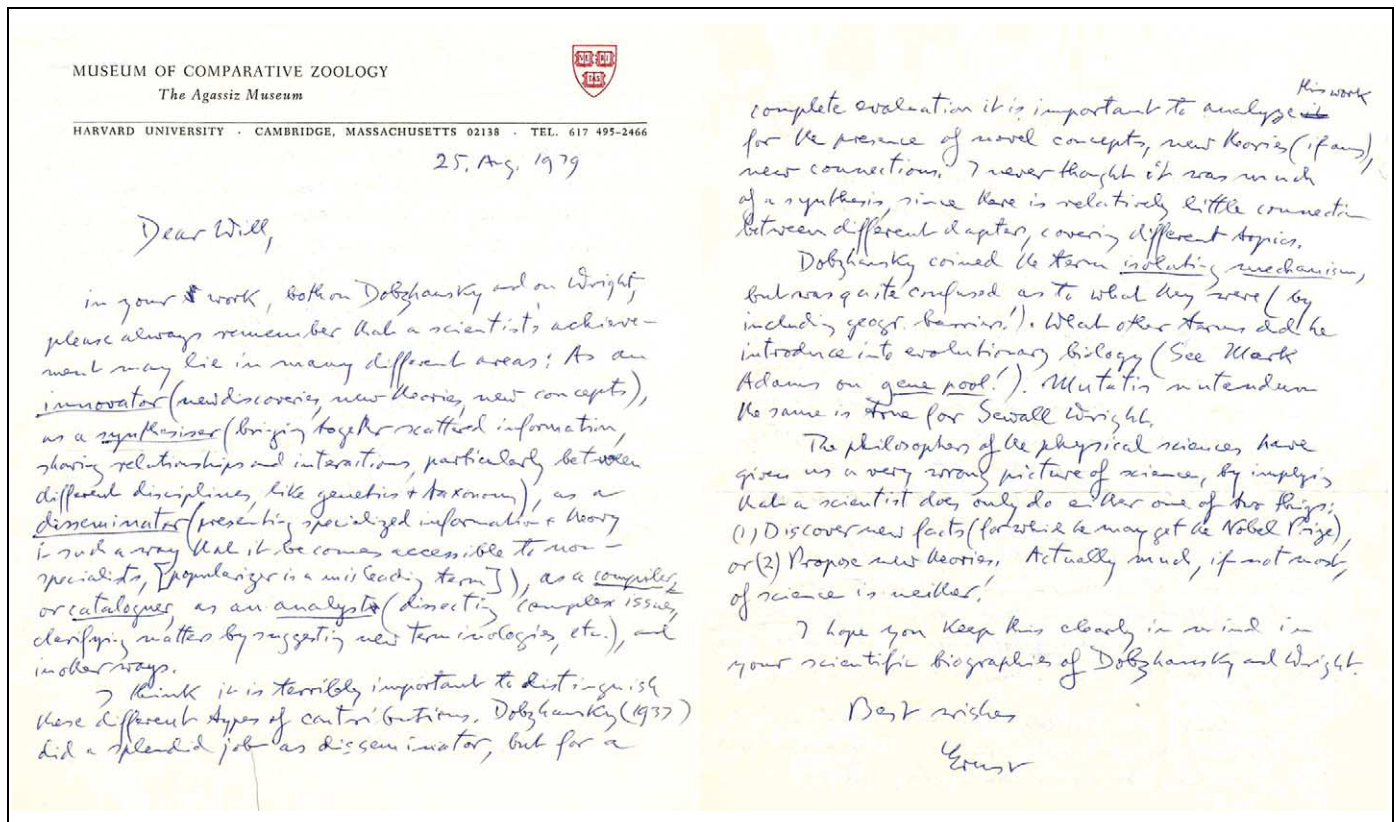 MUSEUM OF COMPARATIVE ZOOLOGY
The Agassiz Museum
VE RI TAS
HARVARD UNIVERSITY · CAMBRIDGE, MASSACHUSETTS 02138 · TEL. 617 495-2466
25. Aug. 1979
Dear Will,
in your work, both on Dobzhansky and on Wright,
please always remember that a scientist's achieve-
ment may lie in many different areas: As an
innovator (new discoveries, new theories, new concepts),
as a synthesiser (bringing together scattered information,
showing relationships and interactions, particularly between
different disciplines, like genetics + taxonomy), as a
disseminator (presenting specialized information + theory
in such a way that it becomes accessible to non-
specialists, [popularizer is a misleading term]), as a compiler,
or cataloguer, as an analyst (dissecting complex issues,
clarifying matters by suggesting new terminologies, etc.), and
in other ways.
I think it is terribly important to distinguish
these different types of contributions. Dobzhansky (1937)
did a splendid job as disseminator, but for a
this work
complete evaluation it is important to analyze it
for the presence of novel concepts, new theories (if any),
new connections. I never thought it was much
of a synthesis, since there is relatively little connection
between different chapters, covering different topics.
Dobzhansky coined the term isolating mechanism,
but was quite confused as to what they were (by
including geogr. barriers!). What other terms did he
introduce into evolutionary biology (See Mark
Adams on gene pool!). Mutatis mutandum
the same is true for Sewall Wright.
The philosophers of the physical sciences have
given us a very wrong picture of science, by implying
that a scientist does only do either one of two things:
(1) Discover new facts (for which he may get the Nobel Prize),
or (2) Propose new theories. Actually much, if not most,
of science is neither!
I hope you keep this clearly in mind in
your scientific biographies of Dobzhansky and Wright.
Best wishes
Ernst